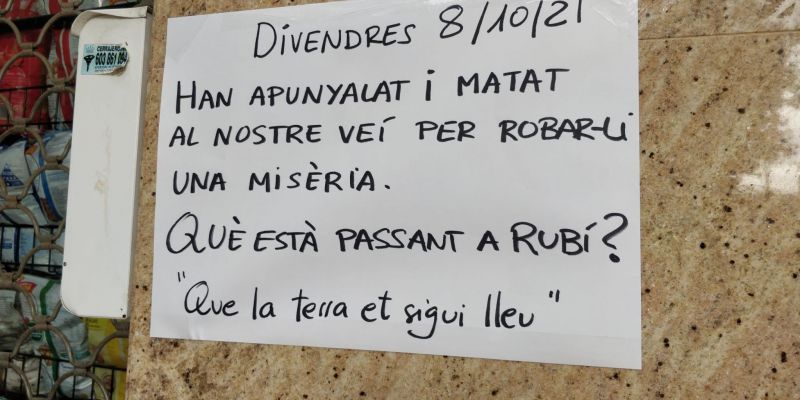 CERRAJERO
603 861 094
DIVENDRES 8/10/21
HAN APUNYALAT i MATAT
AL NOSTRE VEÍ PER ROBAR-LI
UNA MISÈRIA.
QUÈ ESTÀ PASSANT A RUBÍ?
"Que la terra et sigui lleu"